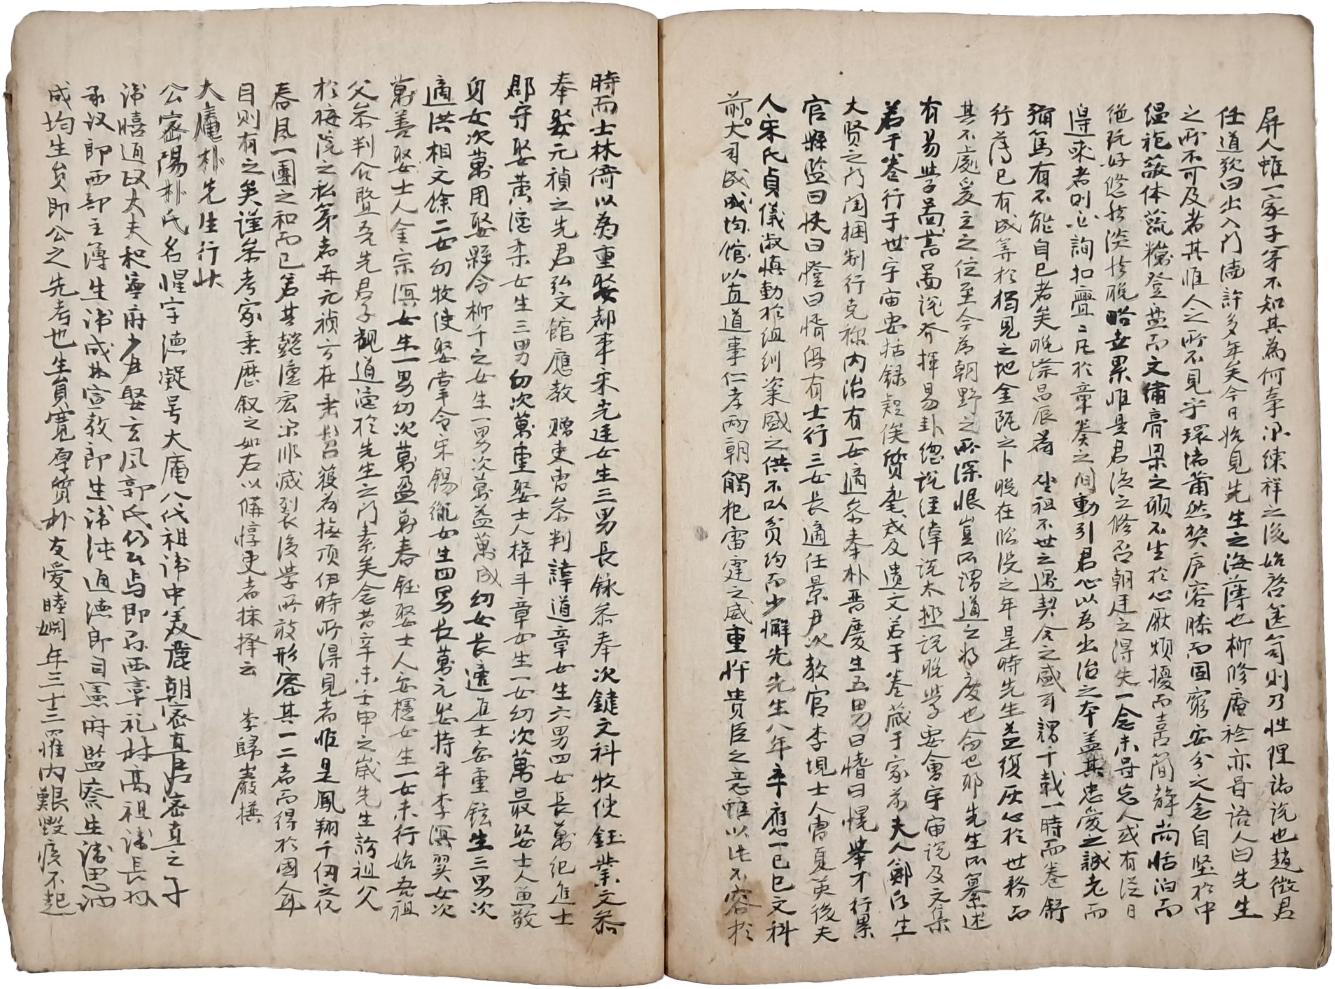 屏人惟一家子弟不知其爲何拿及練祥之後始啓篋笥則乃性理諸說也趙徵君
任道歎曰出入門墻許多年矣今日始見先生之海薄也柳修庵袗亦每語人曰先生
之所不可及者其惟人之所不見乎環堵蕭然樊戶容膝而固窮安分之念自堅於中
縕袍蔽体蔬糲登盤而文繡膏粱之願不生於心厭煩擾而喜簡靜尚恬泊而
絶玩好修於淡於晩略無累惟是君說之修否朝廷之得失一念未忘人或有從日
邊來者則必詢扣亹亹凡於章奏之間動引君心以爲出治之本盖其忠愛之誠老而
彌篤有不能自已者矣晩際昌辰爲坐祖不世之遇契合之感可謂千載一時而卷舒
行藏已有成筭於獨見之地金阮之卜晩在臨沒之年是時先生益復灰心於世務而
其不處爰立之位至今爲朝野之所深恨豈所謂道之將廢也命也耶先生所纂述
有易學圖書圖說發揮易卦總說経緯說太極說晩學要會宇宙說及文集
若干卷行于世宇宙要括錄疑俟質耄戒及遺文若干卷藏于家前夫人鄭氏生
大賢之門閨梱制行克裕內治有一女適參奉朴晋慶生五男曰愭曰愰擧才行累
官縣監曰㤼曰憕曰惰俱有士行三女長適任景尹次敎官李垷士人曺夏英後夫
人宋氏貞儀淑愼動於組紃粢盛之供不以貧約而少懈先先生八年卒應一己巳文科
前大司成成均館以直道事仁孝兩朝觸犯雷霆之威重忤貴臣之意雖以此不容於
時而士林倚以爲重娶都事宋光廷女生三男長錸參奉次鍵文科牧使鈺業文參
奉娶元禎之先君弘文館應敎贈吏曺參判諱道章女生六男四女長萬紀進士
郡守娶黃德柔女生三男幼次萬重娶士人權斗章女生一女幼次萬最娶士人曺敬
身女次萬用娶縣令柳千之女生一男次萬益萬成幼女長適進士安重鉉生三男次
適洪相文餘二女幼牧使娶掌令宋錫胤女生四男長萬元娶持平李溟翼女次
萬善娶士人金宗溟女生一男幼次萬盈萬春鈺娶士人安檍女生一女未行始吾祖
父參判公曁吾先君子觀道德於先生之門素矣念昔辛未壬申之歲先生訪祖父
於梅院之私第者再元禎方在丱髫獲荷撫頂伊時所得見者惟是鳳翔千仞之儀
春風一團之和而已若其懿德宏出非威到長後學所敢形容其一二者而得於國人耳
目則有之矣謹參考家乘歷叙之如右以備惇史者採擇云　李歸巖撰
大庵朴先生行狀
公密陽朴氏名惺字德凝号大庵八代祖諱中美麗朝密直君密直之子
諱暿通政大夫和寧府少尹娶玄風郭氏仍公焉即爲西章礼村高祖諱長孫
承議郎西部主簿生諱成林宣敎郎生諱純通德郎司憲府監察生諱思訥
成均生員即公之先考也生員寬厚質朴友愛睦婣年三十二罹內艱毀瘠不起